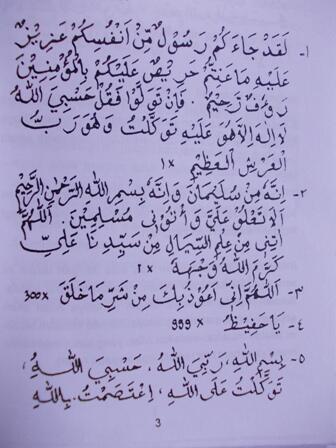 ١- لَقَدْ جَاءَكُمْ رَسُوْلٌ مِّنْ اَنْفُسِكُمْ عَزِيْزٌ
عَلَيْهِ مَا عَنِتُّمْ حَرِيْصٌ عَلَيْكُمْ بِالْمُؤْمِنِيْنَ
رَؤُفٌ رَّحِيْمٌ . فَاِنْ تَوَلَّوْا فَقُلْ حَسْبِيَ اللهُ
لَا اِلٰهَ اِلَّا هُوَ عَلَيْهِ تَوَكَّلْتُ وَهُوَ رَبُّ
الْعَرْشِ الْعَظِيْمِ ١x
٢- اِنَّهُ مِنْ سُلَيْمَانَ وَاِنَّهُ بِسْمِ اللهِ الرَّحْمٰنِ الرَّحِيْمِ
اَلَّا تَعْلُوْ عَلَيَّ وَأْتُوْنِى مُسْلِمِيْنَ . اَللّٰهُمَّ
اٰتِنِى مِنْ عِلْمِ مِنْ سَيِّدِنَا عَلِيٍّ
كَرَّمَ اللهُ وَجْهَهُ ٢x
٣- اَللّٰهُمَّ اِنِّى اَعُوْذُ بِكَ مِنْ شَرِّ مَا خَلَقَ 300x
٤- يَا حَفِيْظُ 999 x
٥- بِسْمِ اللهِ، رَبِّيَ اللهُ، حَسْبِيَ اللهُ،
تَوَكَّلْتُ عَلَى اللهِ، اِعْتَصَمْتُ بِاللهِ
3